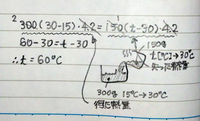 300(30-15)·4.2=150(t-30)·4.2
60-30=t-30
∴t=60℃
150g
t[℃]→30℃
失った熱量
300g 15℃→30℃
得た熱量